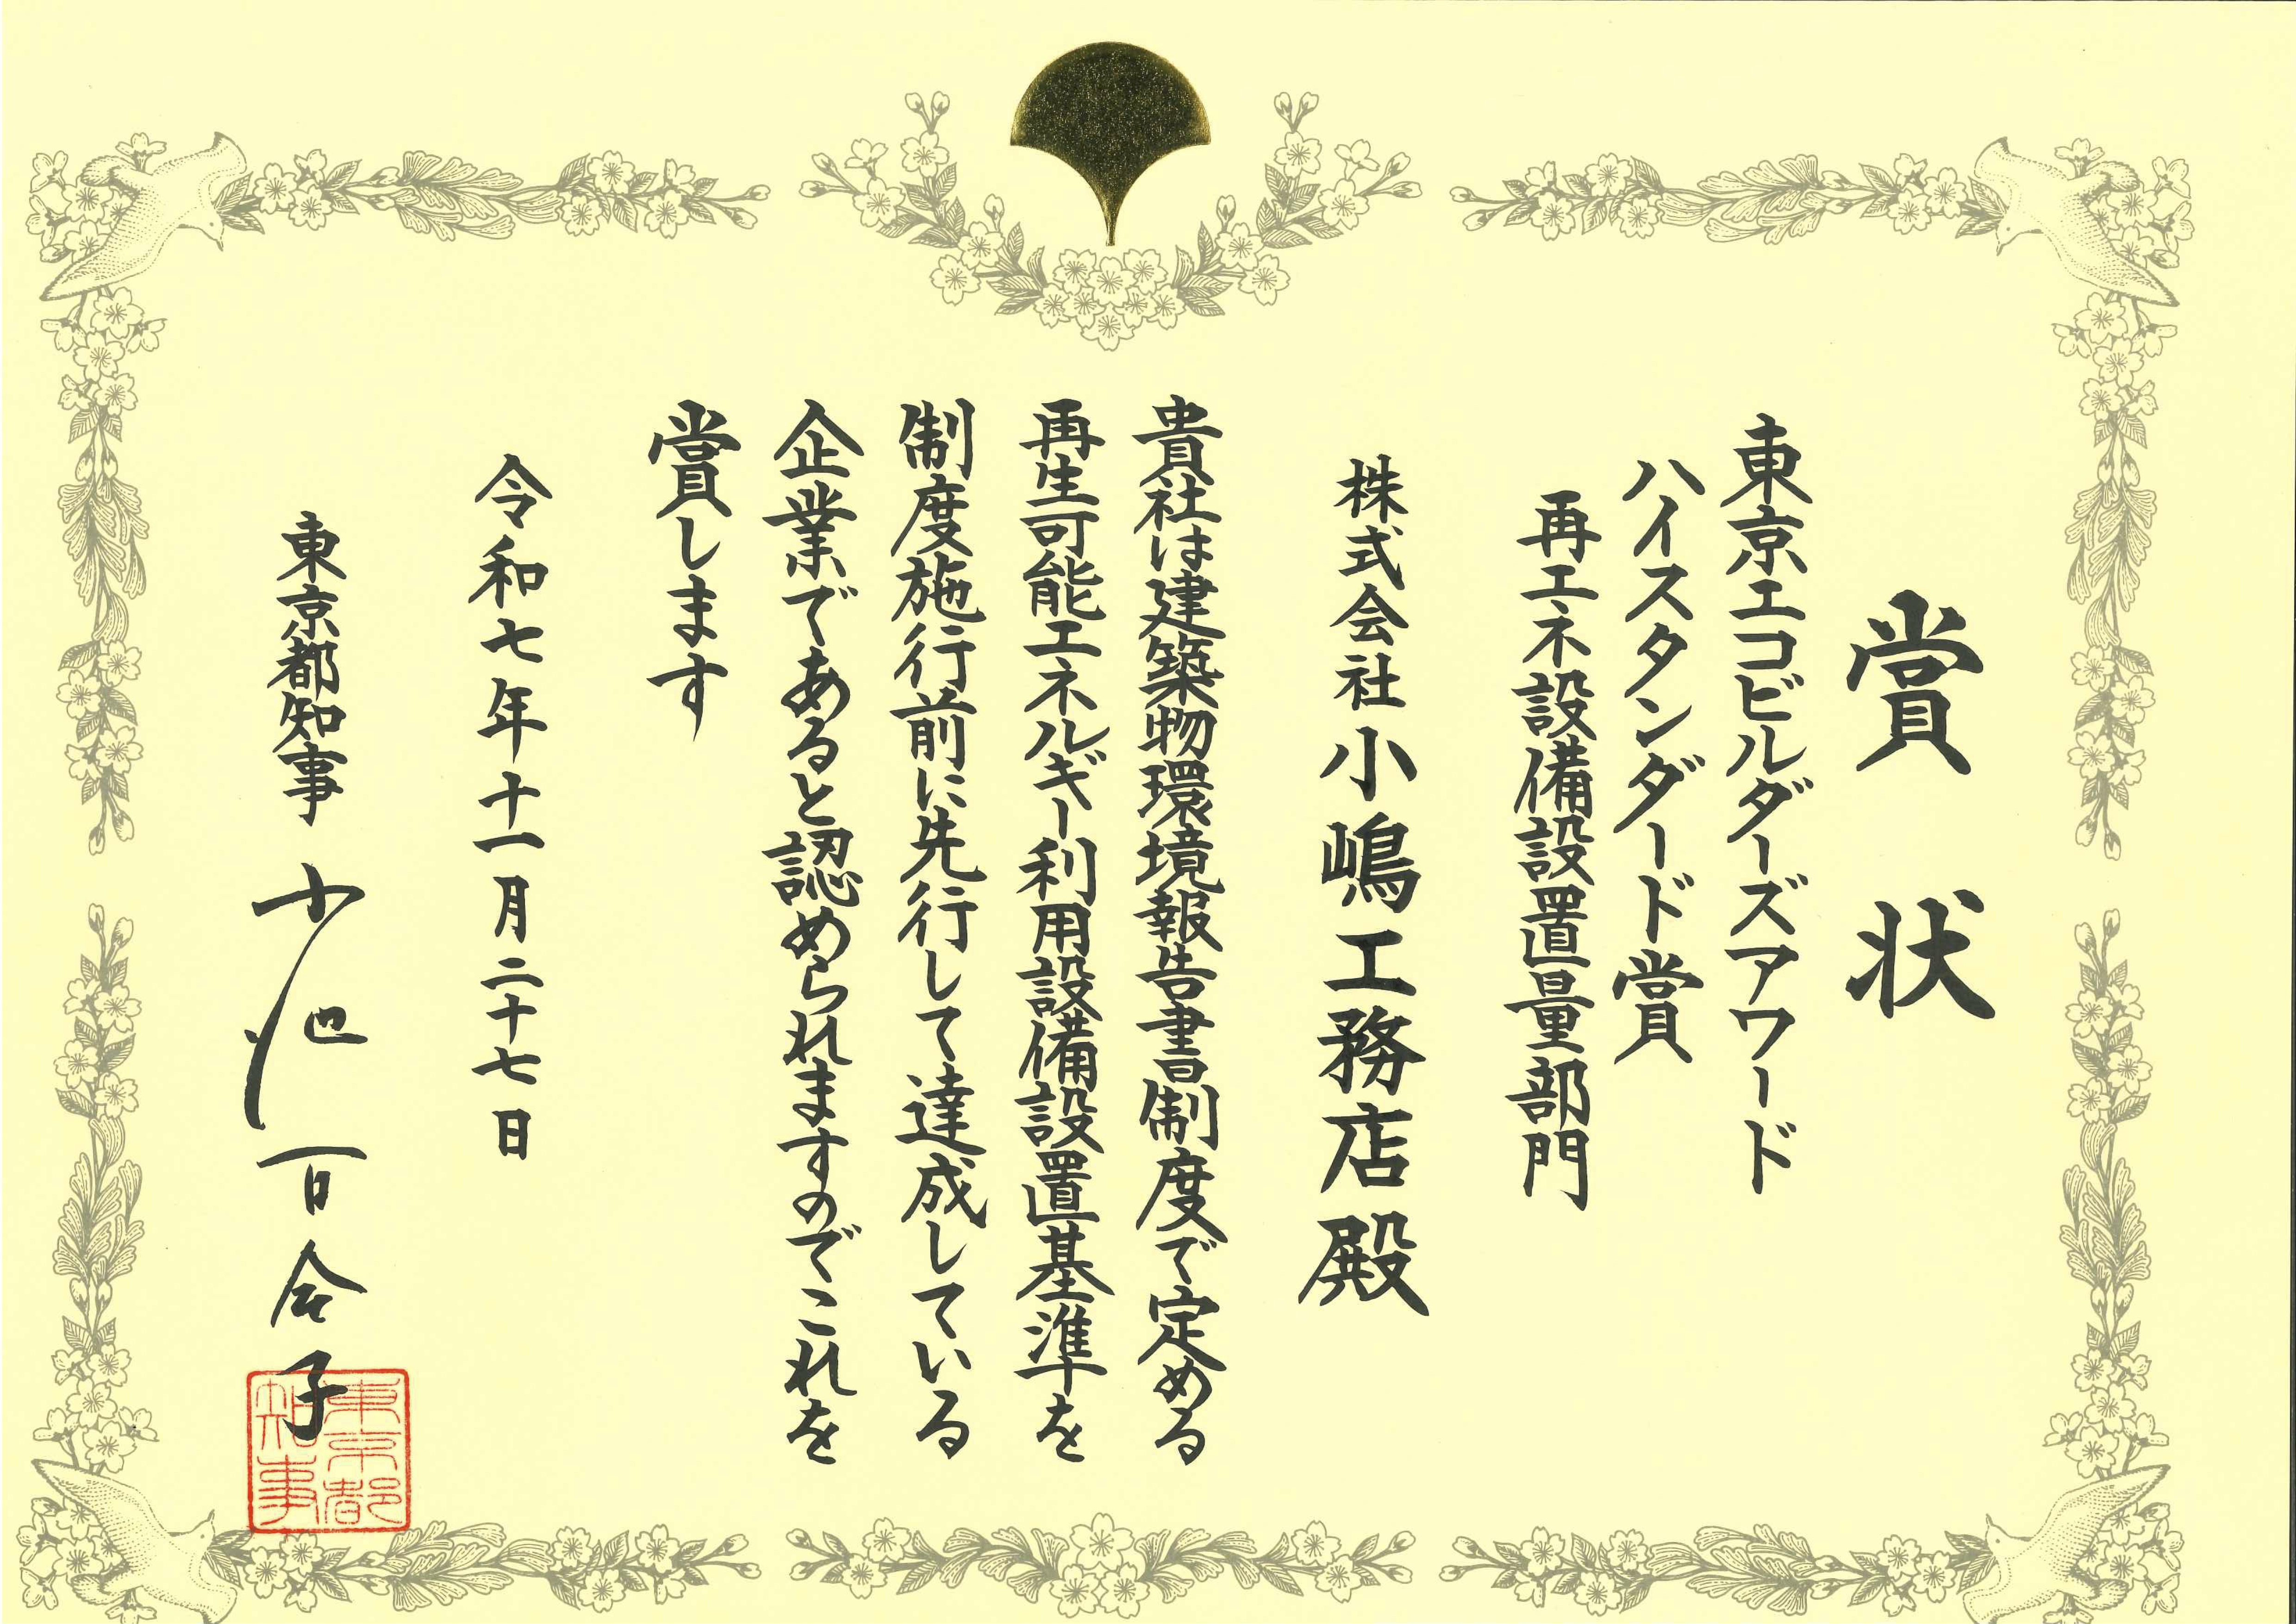 賞状
東京エコビルダーズアワード
ハイスタンダード賞
再エネ設備設置量部門
株式会社小嶋工務店殿
貴社は建築物環境報告書制度で定める
再生可能エネルギー利用設備設置基準を
制度施行前に先行して達成している
企業であると認められますのでこれを
賞します
令和七年十一月二十七日
東京都知事 小池百合子
東京都
知事